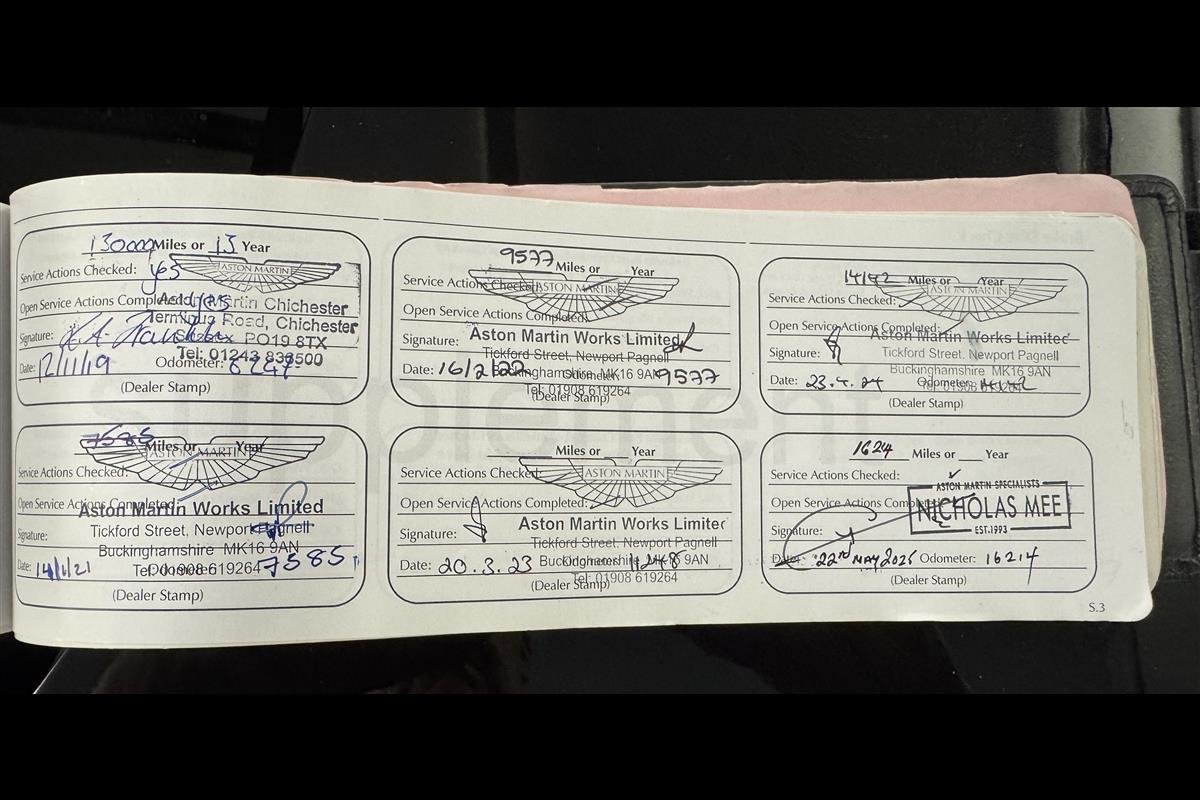 13000 Miles or 13 Year
Service Actions Checked: yes
ASTON MARTIN
Open Service Actions Completed: yes
Aston Martin Chichester
Terminus Road, Chichester
Signature:
Sussex PO19 8TX
Tel: 01243 838500
Date: 12/11/19 Odometer:
(Dealer Stamp)
7585 Miles or Year
ASTON MARTIN
Service Actions Checked:
Open Service Actions Completed:
Aston Martin Works Limited
Tickford Street, Newport Pagnell
Signature:
Buckinghamshire MK16 9AN
Date: 14/1/21 Odometer: 7585
Tel: 01908 619264
(Dealer Stamp)
9577 Miles or Year
Service Actions Checked:
ASTON MARTIN
Open Service Actions Completed:
Aston Martin Works Limited
Signature:
Tickford Street, Newport Pagnell
Date: 16/2/22 Odometer: 9577
Buckinghamshire MK16 9AN
Tel: 01908 619264
(Dealer Stamp)
Miles or Year
Service Actions Checked:
ASTON MARTIN
Open Service Actions Completed:
Aston Martin Works Limited
Signature:
Tickford Street, Newport Pagnell
Buckinghamshire MK16 9AN
Date: 20.3.23 Odometer: 11248
Tel: 01908 619264
(Dealer Stamp)
14142 Miles or Year
ASTON MARTIN
Service Actions Checked:
Open Service Actions Completed:
Aston Martin Works Limited
Signature:
Tickford Street, Newport Pagnell
Buckinghamshire MK16 9AN
Date: 23.4.24 Odometer: 14142
(Dealer Stamp)
1624 Miles or Year
Service Actions Checked:
ASTON MARTIN SPECIALISTS
Open Service Actions Completed:
NICHOLAS MEE
EST.1993
Signature:
Date: 22nd MAY 2025 Odometer: 16214
(Dealer Stamp)
S.3
supplement